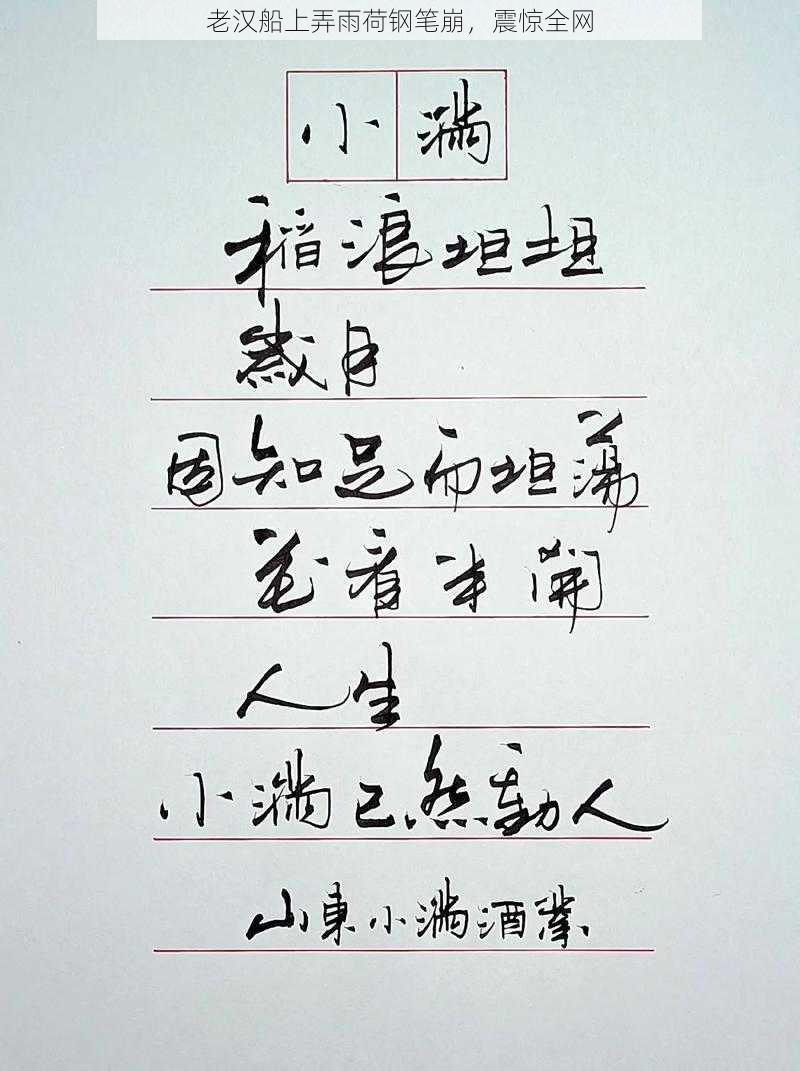 老汉船上弄雨荷钢笔崩，震惊全网
小满
稻浪坦坦
岁月
因知足而坦荡
花看半開
人生
小满已然動人
山東小满酒業